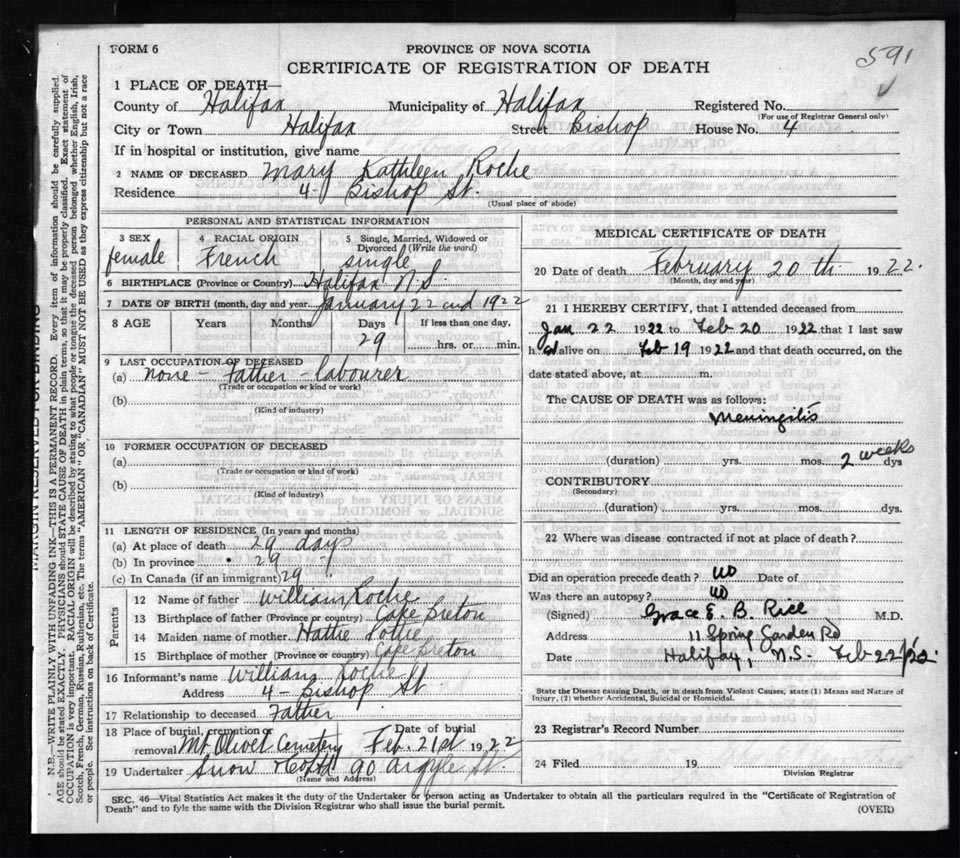 FORM 6
PROVINCE OF NOVA SCOTIA
591
CERTIFICATE OF REGISTRATION OF DEATH
1 PLACE OF DEATH—
County of Halifax Municipality of Halifax Registered No.
(For use of Registrar General only)
City or Town Halifax Street Bishop House No. 4
If in hospital or institution, give name
2 NAME OF DECEASED Mary Kathleen Roche
Residence 4- Bishop St.
(Usual place of abode)
PERSONAL AND STATISTICAL INFORMATION
3 SEX
female
4 RACIAL ORIGIN
French
5 Single, Married, Widowed or
Divorced (Write the word)
single
6 BIRTHPLACE (Province or Country) Halifax N.S.
7 DATE OF BIRTH (month, day and year) January 22 and 1922
8 AGE Years Months Days If less than one day,
29 hrs. or min.
9 LAST OCCUPATION OF DECEASED
(a) none - Father - labourer
(Trade or occupation or kind or work)
(b)
(Kind of industry)
10 FORMER OCCUPATION OF DECEASED
(a)
(Trade or occupation or kind of work)
(b)
(Kind of industry)
11 LENGTH OF RESIDENCE (In years and months)
(a) At place of death 29 days
(b) In province 29
(c) In Canada (if an immigrant) 29
Parents
12 Name of father William Roche
13 Birthplace of father (Province or country) Cape Breton
14 Maiden name of mother Hattie
15 Birthplace of mother (Province or country) Cape Breton
16 Informant's name William Roche
Address 4 - Bishop St
17 Relationship to deceased Father
18 Place of burial, cremation or Date of burial
removal Mt Olivet Cemetery Feb. 21st 1922
19 Undertaker Snow & Co Ltd 90 Argyle St.
(Name and Address)
MEDICAL CERTIFICATE OF DEATH
20 Date of death February 20 th 1922.
(Month, day and year)
21 I HEREBY CERTIFY, that I attended deceased from
Jan 22 1922 to Feb 20 1922 that I last saw
h alive on Feb 19 1922 and that death occurred, on the
date stated above, at m.
The CAUSE OF DEATH was as follows:
Meningitis
(duration) yrs. mos. 2 weeks dys
CONTRIBUTORY
(Secondary)
(duration) yrs. mos. dys.
22 Where was disease contracted if not at place of death?
Did an operation precede death? no Date of
Was there an autopsy? no
(Signed) Grace E. B. Rice M.D.
Address 11 Spring Garden Rd
Date Halifax, N.S. Feb 22/22.
State the Disease causing Death, or in death from Violent Causes, state (1) Means and Nature of
Injury, (2) whether Accidental, Suicidal or Homicidal.
23 Registrar's Record Number
24 Filed 19
Division Registrar
SEC. 46—Vital Statistics Act makes it the duty of the Undertaker or person acting as Undertaker to obtain all the particulars required in the "Certificate of Registration of
Death" and to fyle the same with the Division Registrar who shall issue the burial permit.
(OVER)
MARGIN RESERVED FOR BINDING
N.B.—WRITE PLAINLY WITH UNFADING INK—THIS IS A PERMANENT RECORD. Every item of information should be carefully supplied.
AGE should be stated EXACTLY. PHYSICIANS should STATE CAUSE OF DEATH in plain terms, so that it may be properly classified. Exact statement of
OCCUPATION is very important. RACIAL ORIGIN will be described by stating to what people or tongue the deceased person belonged whether English, Irish,
Scotch, French, German, Russian, Ruthenian, etc. The terms "AMERICAN" OR "CANADIAN" MUST NOT BE USED as they express citizenship but not a race
or people. See instructions on back of Certificate.